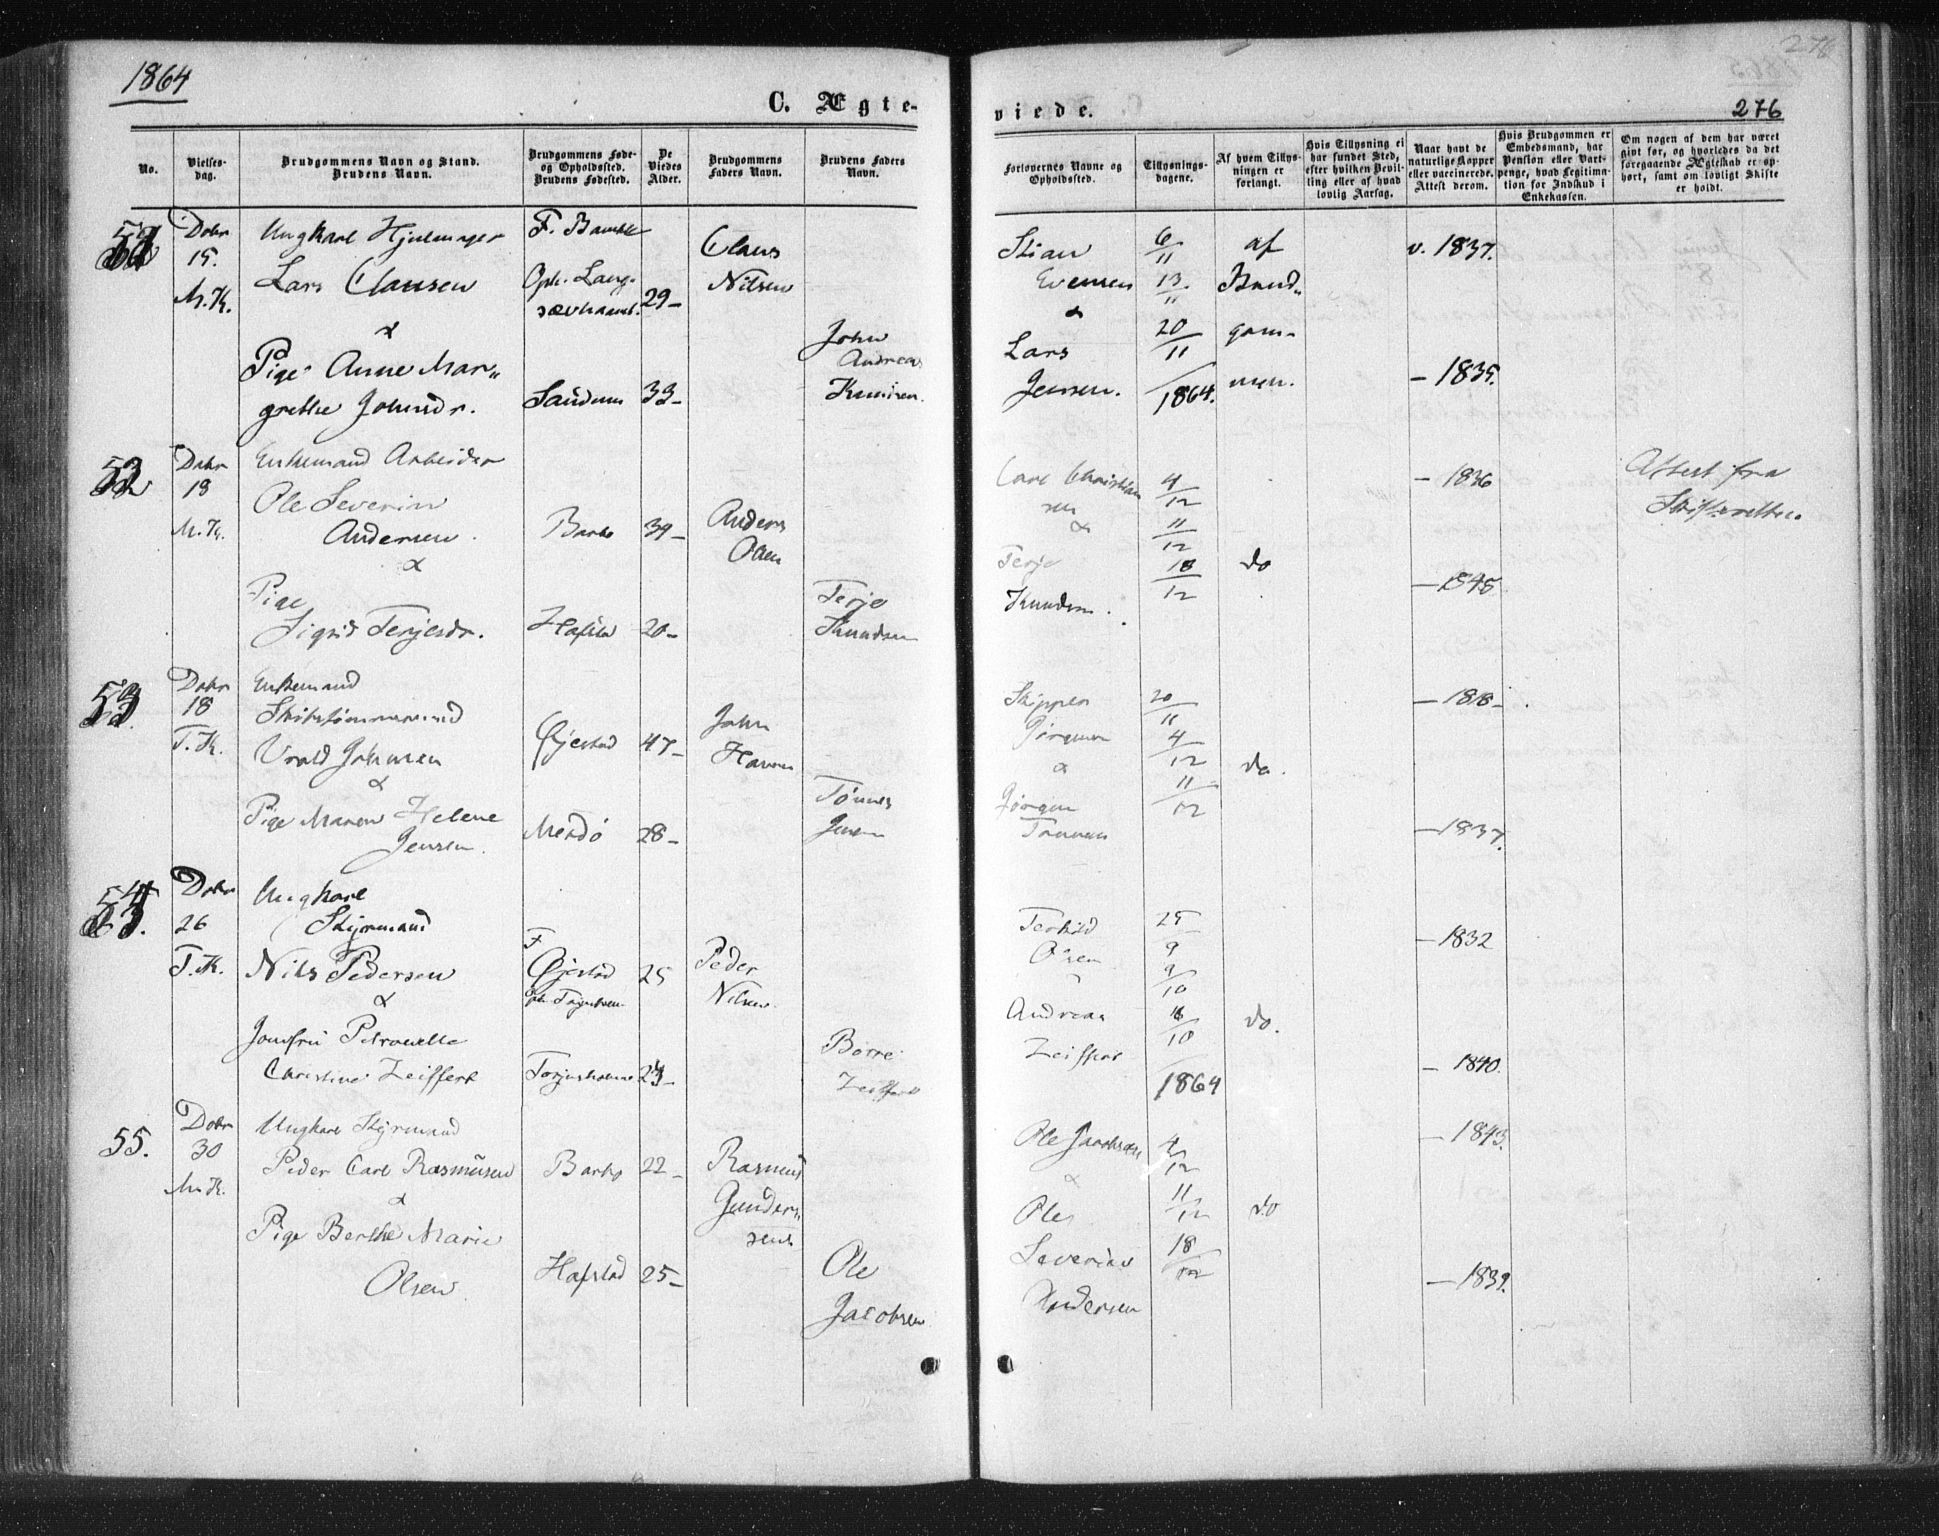 1864
C. Ægte-
viede.
276
276
No.
Vielses-
dag.
Brudgommens Navn og Stand.
Brudens Navn.
Brudgommens Føde-
og Opholdssted.
Brudens Fødested.
De
Viedes
Alder.
Brudgommens
Faders Navn.
Brudens Faders
Navn.
Forlovernes Navne og
Opholdssted.
Tillysnings-
dagene.
Af hvem Tillys-
ningen er
forlangt.
Hvis Tillysning ei
har fundet Sted,
efter hvilken Bevil-
ling eller af hvad
lovlig Aarsag.
Naar havt de
naturlige Kopper
eller vaccinerede.
Attest derom.
Hvis Brudgommen er
Embedsmand, har
Pension eller Vart-
penge, hvad Legitima-
tion for Indskud i
Enkekassen.
Om nogen af dem har været
givt før, og hvorledes da det
foregaaende Ægteskab er op-
hørt, samt om lovligt Skifte
er holdt.
51
Debr
15.
M.K.
Ungkarl Hjulmager
Lars Clausen
&
Pige Anne Mar„
grethe Johnsdr.
F. Bamble
Oph. Lang-
sævhavnt.
Sandum
29-
33-
Claus
Nilsen
John
Andreas
Knudsen.
Stian
Evensen
&
Lars
Jensen.
6/11
13/11
20/11
1864.
af
Brud„
gom-
men.
v. 1837.
- 1835.
52
Debr
18
M.K.
Enkemand Arbeider
Ole Severin
Andersen
&
Pige
Sigrid Terjesdr.
Barbo
Hafsta
39-
20-
Anders
Olsen
Terje
Knudsen
Carl Christian
sen
&
Terje
Knudsen.
4/12
11/12
18/12
do
- 1836
- 1845
Attest fra
Skifteretten.
53
Debr
18
T.K.
Enkemand
Skibstømmermand
Vrold Johnsen
&
Pige Maren Helene
Jensen.
Øjestad
Merdö
47-
28-
John
Hansen
Tönnes
Jensen
Skipper
&
Jörgen
Tönnesen
20/11
4/12
11/12
do.
- 1818-
- 1837.
54.
Debr
26
T.K.
Ungkarl
Styrmand
Nils Pedersen
&
Jomfru Petronelle
Christine Zeiffert
F
Øjestad
Torjusholmen
25
23-
Peder
Nilsen
Börre
Zeiffert
Terkild
Olsen
&
Andreas
Zeiffert
25/9
9/10
16/10
1864
do.
- 1832
- 1840.
55.
Debr
30
M.K.
Ungkarl Styrmand
Peder Carl Rasmüsen
&
Pige Berthe Marie
Olsen.
Barbo
Hafstad
22-
25-
Rasmus
Gunder„
sen.
Ole
Jacobsen
Ole Jacobsen
&
Ole
Severin
Andersen
4/12
11/12
18/12
do
- 1843.
- 1839.